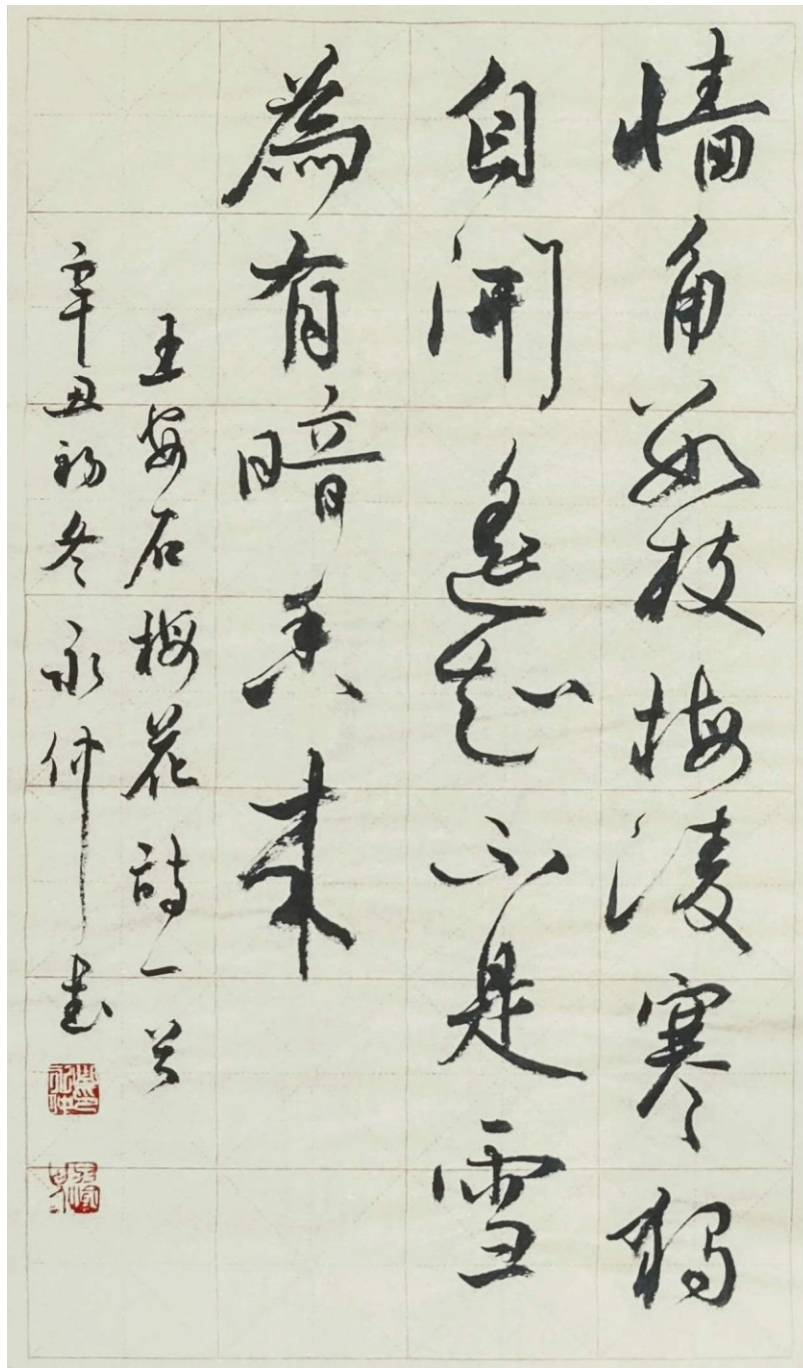 墙角数枝梅凌寒独
自開遥知不是雪
為有暗香来
王安石梅花詩一首
辛丑初冬永仲书